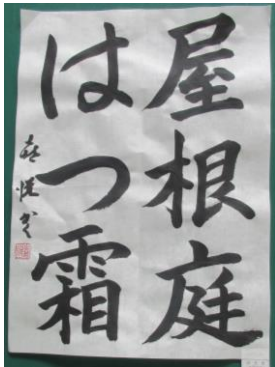 屋根庭
はつ霜